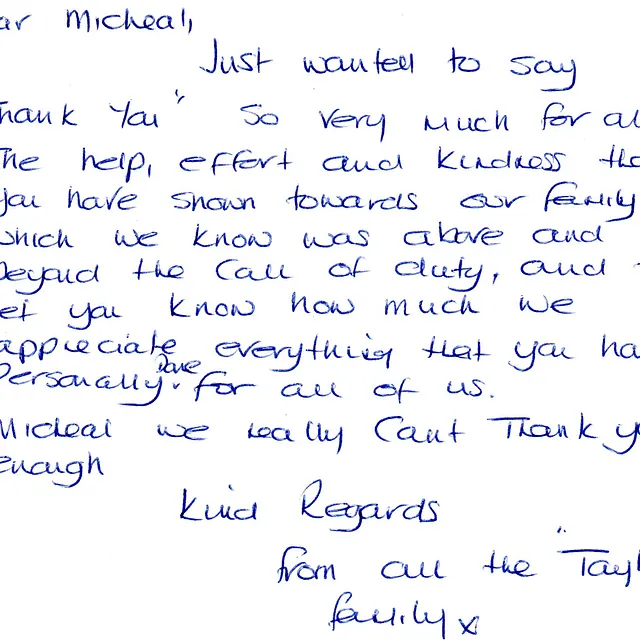 ar Micheal,
Just wanted to say
hank You" So very much for al
The help, effort and kindness tha
you have shown towards our family
which we know was above and
Beyond the Call of duty, and t
et you know how much we
appreciate everything that you ha
Personally done for all of us.
Micheal we really Can't Thank yo
enough
Kind Regards
from all the "Tayl
family x